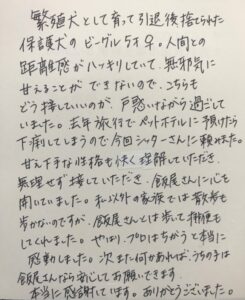 繁殖犬として育って引退後捨てられた
保護犬のビーグル5才♀。人間との
距離感がハッキリしていて、無邪気に
甘えることができないので、こちらも
どう接していいのか、戸惑いながら過ごして
いました。去年旅行でペットホテルに預けたら
下痢してしまうので今回シッターさんに頼みました。
甘え下手な性格も快く理解していただき、
無理せず接していただき、飯尾さんに心を
開いていました。私以外の家族では散歩も
歩かないのですが、飯尾さんとは歩いて排便も
してくれました。やっぱり、プロはちがうて本当に
感動しました。次また何かあれば、うちの子は
飯尾さんなら安心してお願いできます。
本当に感謝しています。ありがとうございました。